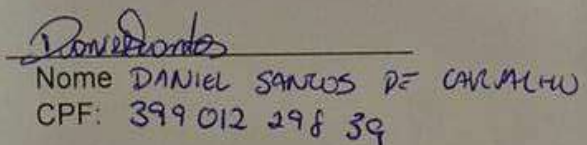 Nome DANIEL SANTOS DE CARVALHO
CPF: 399 012 298 39